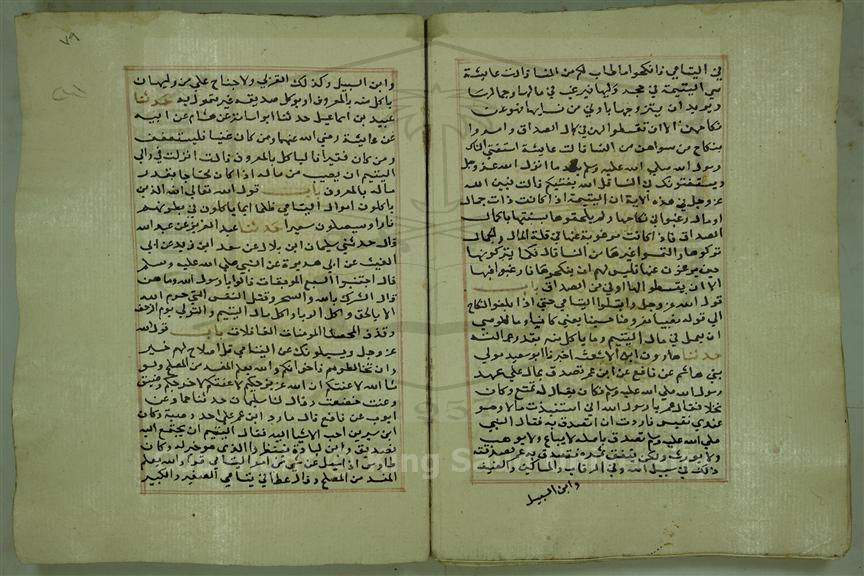 في اليتامي فانكحوا ما طاب لكم من النسا قالت عايشة
هي اليتيمة في حجر وليها فيرغب في مالها وجمالها
ويريد ان يتزوجها بادني من نسايها فنهوا عن
نكاحهن الا ان تقسطوا لهن في اكمال الصداق وامروا
بنكاح من سواهن من النسا قالت عايشة استفتي الناس
رسول الله صلي الله عليه وسلم بعد ما انزل الله عز وجل
ويستفتونك في النسا قل الله يفتيكم قالت فبين الله
عز وجل في هذه الاية ان اليتيمة اذا كانت ذات جمال
او مال رغبوا في نكاحها ولم يلحقوها بسنتها باكمال
الصداق فاذا كانت مرغوبة عنها في قلة المال والجمال
تركوها والتمسوا غيرها من النسا قال فكما يتركونها
حين يرغبون عنها فليس لهم ان ينكحوها اذا رغبوا فيها
الا ان يقسطوا لها الاوفي من الصداق باب
قول الله عز وجل وابتلوا اليتامي حتي اذا بلغوا النكاح
الي قوله نصيبا مفروضا حسيبا يعني كافيا وما للوصي
ان يعمل في مال اليتيم وما ياكل منه بقدر عمالته
حدثنا هارون ابن الاشعث اخبرنا ابو سعيد مولي
بني هاشم عن نافع عن ابن عمر تصدق بمال علي عهد
رسول الله صلي الله عليه وسلم وكان يقال له ثمغ وكان
نخلا فقال عمر يا رسول الله اني استفدت مالا وهو
عندي نفيس فاردت ان اتصدق به فقال النبي
صلي الله عليه وسلم تصدق باصله لا يباع ولا يوهب
ولا يورث ولكن ينفق ثمره فتصدق به عمر فصدقته
ذلك في سبيل الله وفي الرقاب والمساكين والضيف
وابن السبيل
٧٩
وابن السبيل وكذلك القربي ولا جناح علي من وليه ان
ياكل منه بالمعروف او يوكل صديقه غير متمول به حدثنا
عبيد بن اسماعيل حدثنا ابو اسامة عن هشام عن ابيه
عن عايشة رضي الله عنها ومن كان غنيا فليستعفف
ومن كان فقيرا فلياكل بالمعروف قالت انزلت في والي
اليتيم ان يصيب من ماله اذا كان محتاجا بقدر
ماله بالمعروف باب قول الله تعالي ان الذين
ياكلون اموال اليتامي ظلما انما ياكلون في بطونهم
نارا وسيصلون سعيرا حدثنا عبد العزيز بن عبد الله
قال حدثني سليمان ابن بلال عن ابن زيد عن ابي
الغيث عن ابي هريرة عن النبي صلي الله عليه وسلم
قال اجتنبوا السبع الموبقات قالوا يا رسول الله وما هن
قال الشرك بالله والسحر وقتل النفس التي حرم الله
الا بالحق واكل الربا واكل مال اليتيم والتولي يوم الزحف
وقذف المحصنات المومنات الغافلات باب قول الله
عز وجل ويسيلونك عن اليتامي قل اصلاح لهم خير
وان تخالطوهم فاخوانكم والله يعلم المفسد من المصلح ولو
شا الله لاعنتكم ان الله عزيز حكيم لاعنتكم لاحرجكم وضيق
وعنت خضعت وقال لنا سليمان حدثنا حماد عن
ايوب عن نافع قال ما رد ابن عمر علي احد وصية وكان
ابن سيرين احب الاشيا اليه في مال اليتيم ان يجتمع اليه
فينظروا الذي هو خير له وكان
طاوس اذا سيل عن شي من امر اليتامي قرا والله يعلم
المفسد من المصلح وقال عطا في يتامي الصغير والكبير